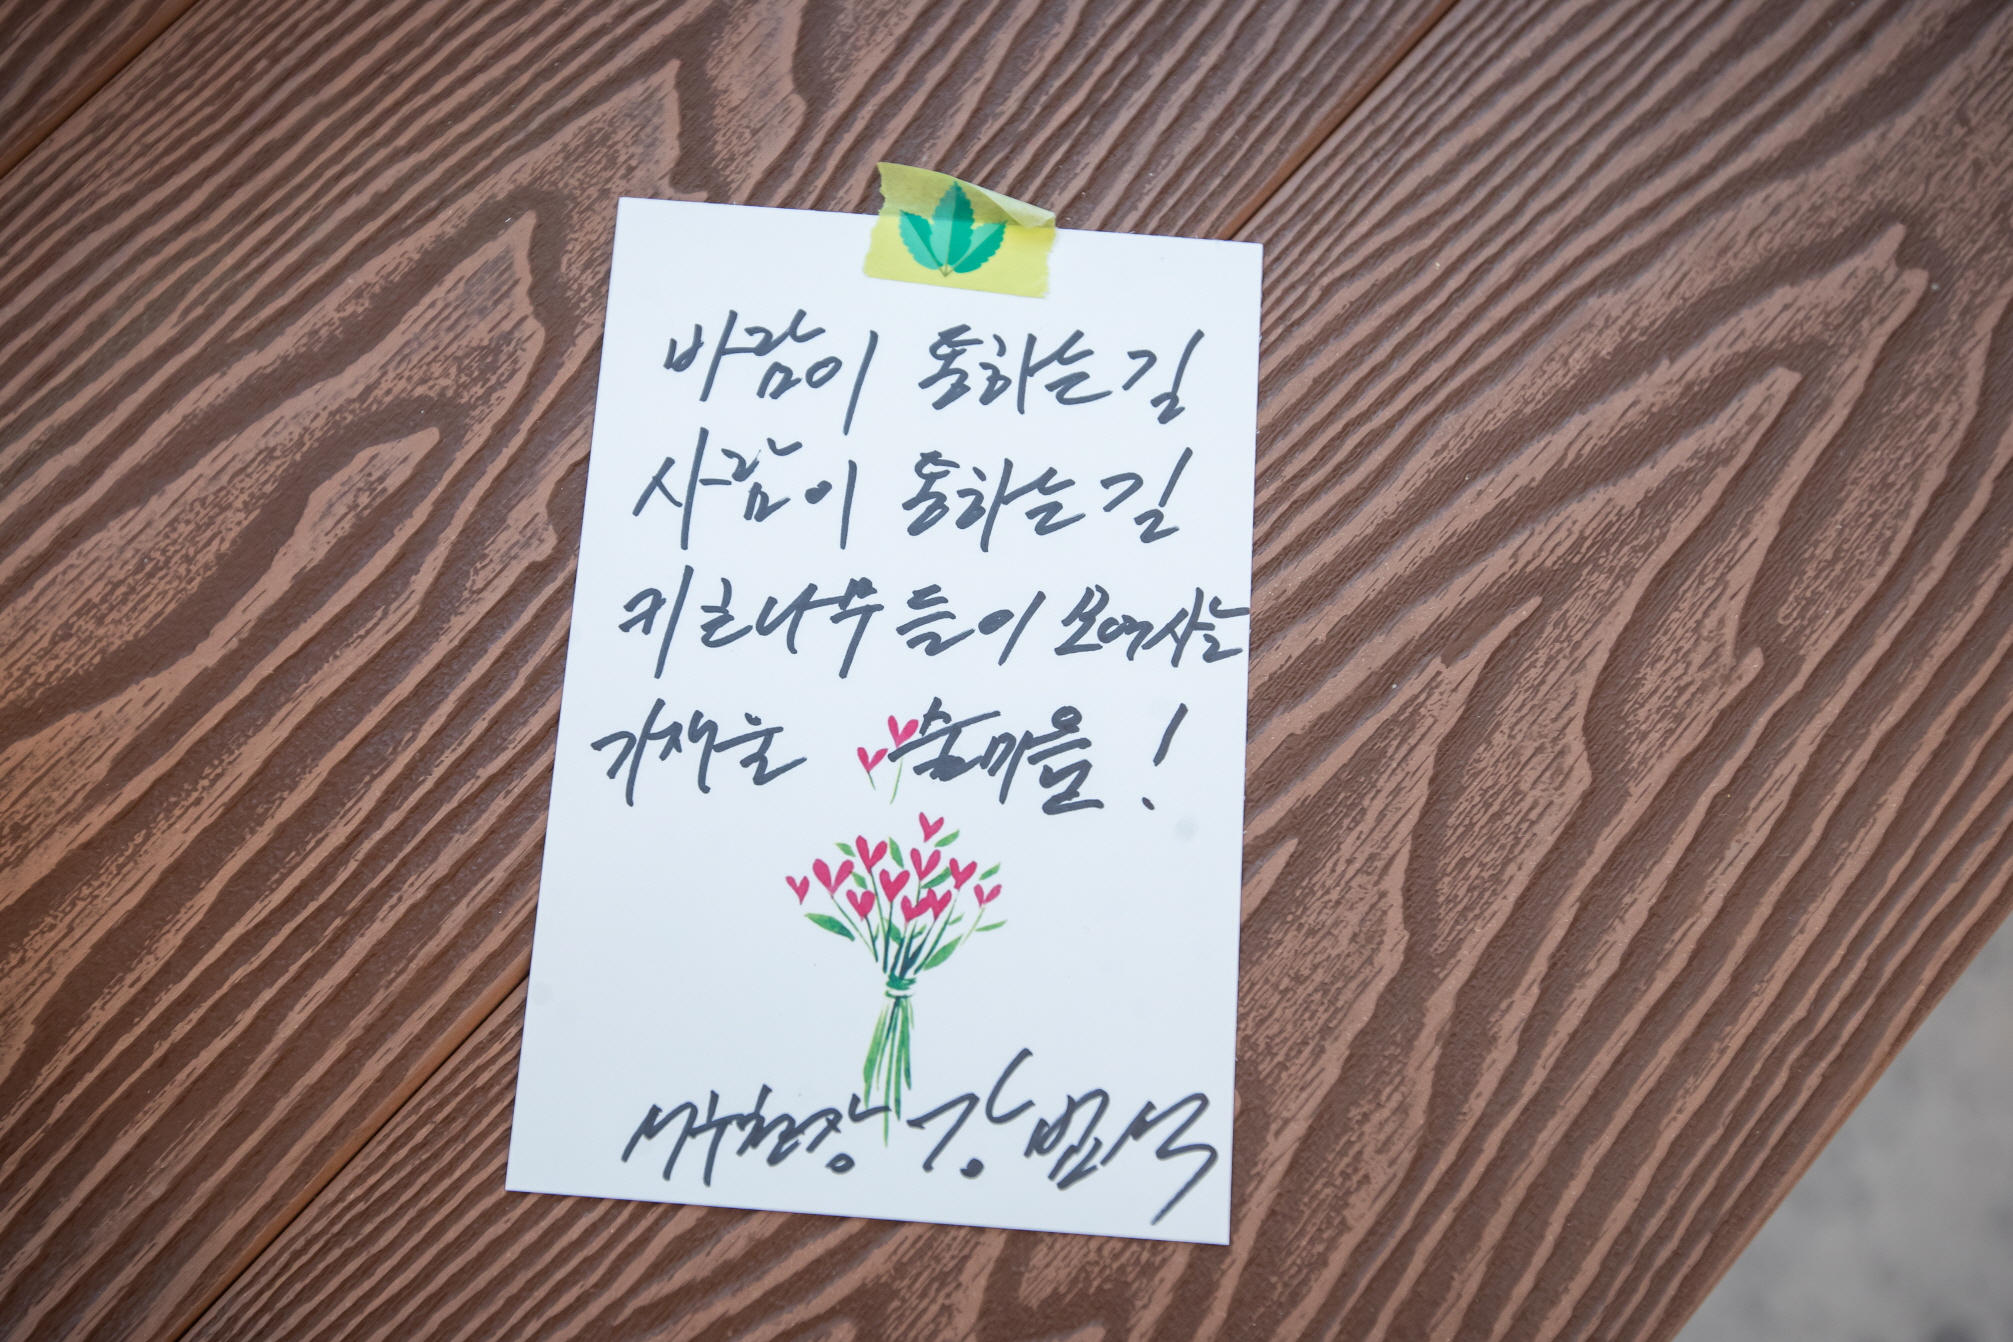 바람이 통하는 길
사람이 통하는 길
키 큰 나무들이 모여사는
가재울 숲마을!
서구청장 강범석